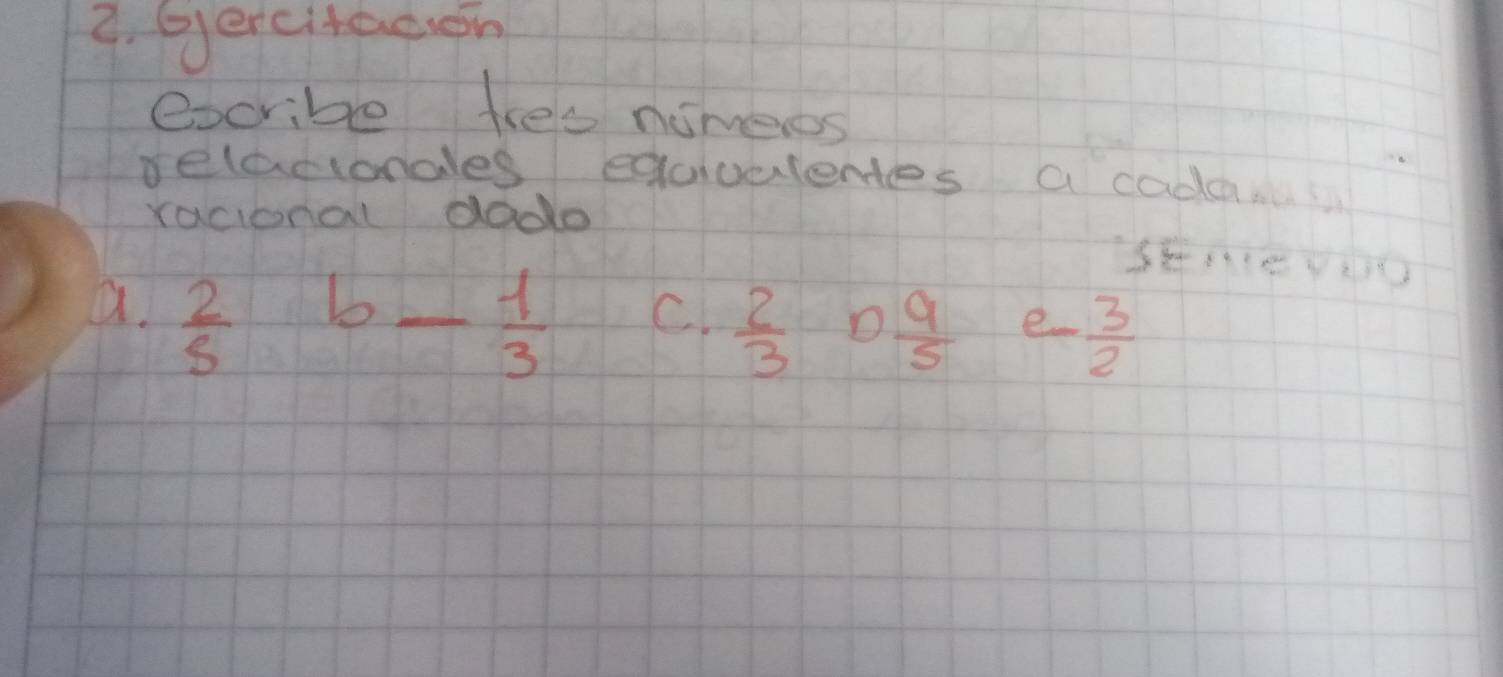 2. Ejercitación
escribe tres números
relacionales equivalentes a cada
racional dado
a. 2/5 b - 1/3 c. 2/3 D 9/5 e - 3/2